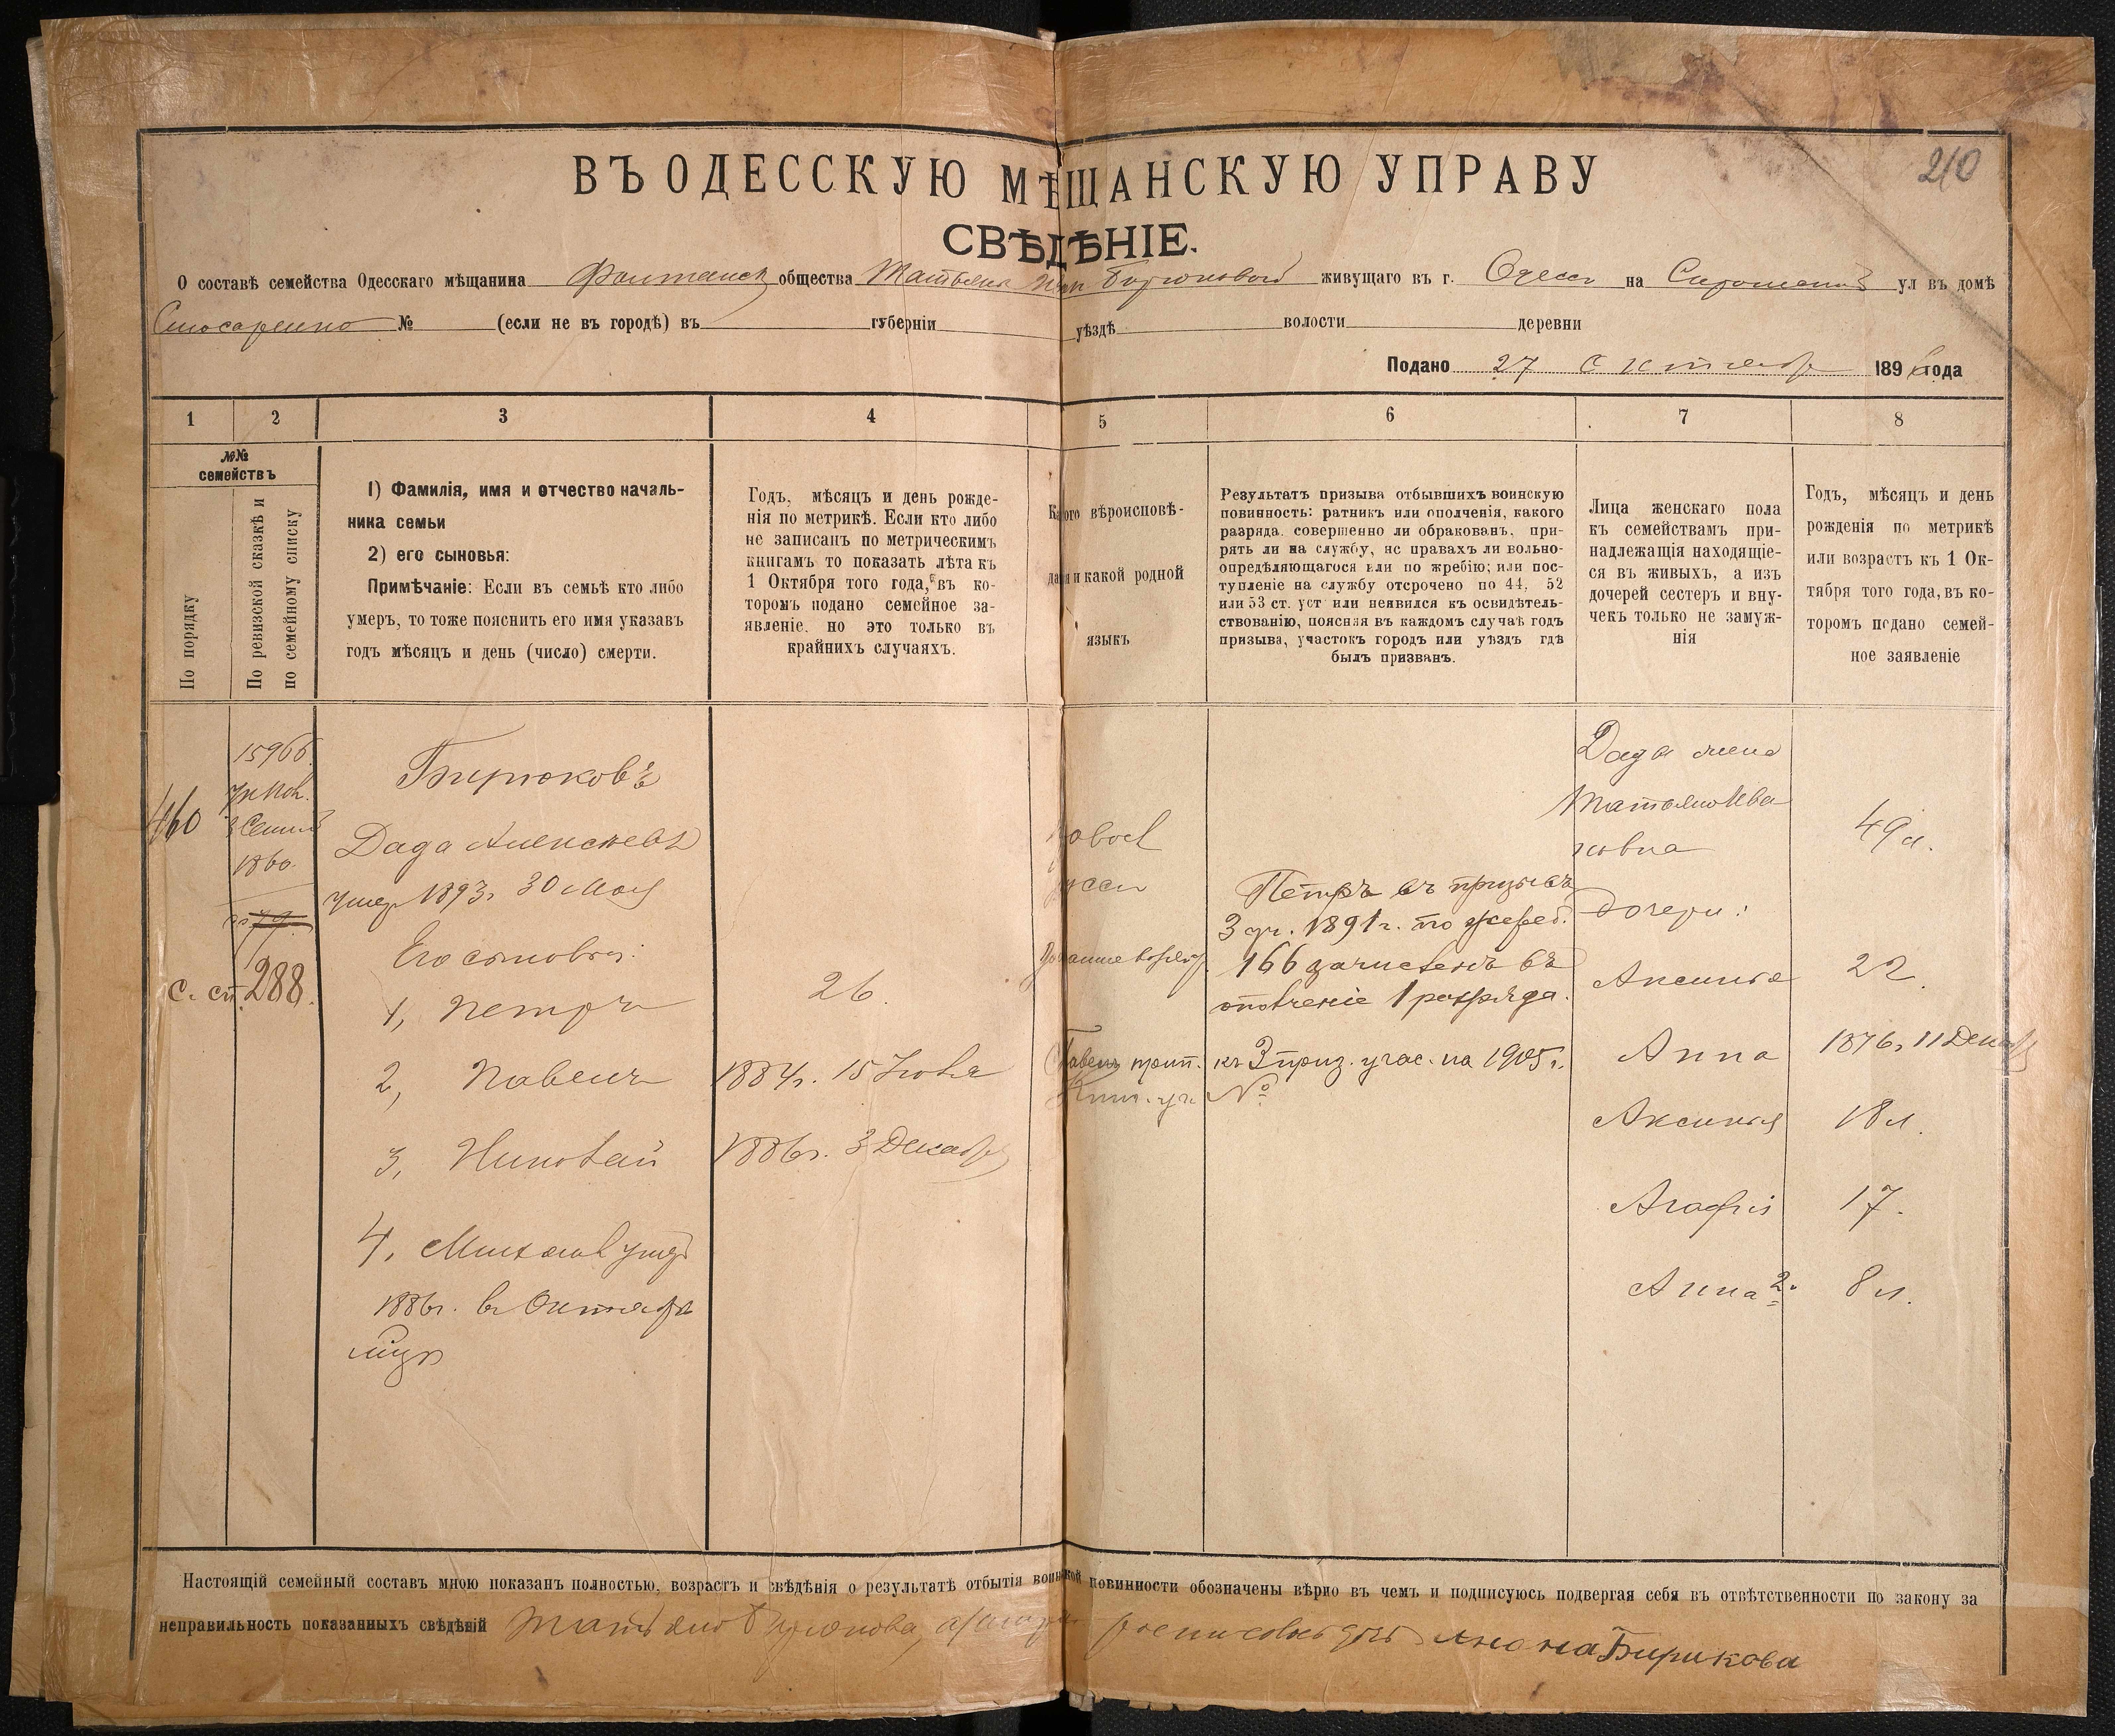 210
ВЪ ОДЕССКУЮ МѢЩАНСКУЮ УПРАВУ
СВѢДѢНІЕ.
О составѣ семейства Одесскаго мѣщанина Фонтанск общества Татьяна Бирюковой живущаго въ г. Одессѣ на ул въ домѣ
Слюсаренко № (если не въ городѣ) въ губерніи уѣздѣ волости деревни
Подано 27 Сентября 1896 года
1 2 3 4 5 6 7 8
№№ семействъ
По порядку
По ревизской сказкѣ и по семейному списку
1) Фамилія, имя и отчество началь-
ника семьи
2) его сыновья:
Примѣчаніе: Если въ семьѣ кто либо
умеръ, то тоже пояснить его имя указавъ
годъ мѣсяцъ и день (число) смерти.
Годъ, мѣсяцъ и день рожде-
нія по метрикѣ. Если кто либо
не записанъ по метрическимъ
книгамъ то показать лѣта къ
1 Октября того года, въ ко-
торомъ подано семейное за-
явленіе, но это только въ
крайнихъ случаяхъ.
Какого вѣроисповѣ-
данія и какой родной
языкъ
Результатъ призыва отбывшихъ воинскую
повинность: ратникъ или ополченія, какого
разряда. совершенно ли обракованъ, при-
рять ли на службу, нс правахъ ли вольно-
опредѣляющагося или по жребію; или пос-
тупленіе на службу отсрочено по 44, 52
или 53 ст. уст или неявился къ освидѣтель-
ствованію, поясняя въ каждомъ случаѣ годъ
призыва, участокъ городъ или уѣздъ гдѣ
былъ призванъ.
Лица женскаго пола
къ семействамъ при-
надлежащія находящіе-
ся въ живыхъ, а изъ
дочерей сестеръ и вну-
чекъ только не замуж-
нія
Годъ, мѣсяцъ и день
рожденія по метрикѣ
или возрастъ къ 1 Ок-
тября того года, въ ко-
торомъ подано семей-
ное заявленіе
460
1860
с. сп. 288.
Бирюковъ
Дада Алексѣевъ
умер 1893г 30 Мая
Его сыновья:
1, Петръ 26.
2, Павелъ 1884г. 15 Іюня
3, Николай 1886г. 3 Декабря
4, Михаилъ умеръ
1886г. въ Октябрѣ
мцѣ
Петръ въ призывъ
3 уч. 1891г. по жереб.
166 зачисленъ въ
ополченіе 1 разряда.
Павелъ прип. къ 3 приз. учас. на 1905г.
№
Дада жена
Татьяна Ива
новна 49 л.
дочери:
Аксинья 22
Анна 1876г 11 Декаб
Аксинья 18 л.
Агафія 17.
Анна 2. 8 л.
Настоящій семейный составъ мною показанъ полностью, возрастъ и свѣдѣнія о результатѣ отбытія воинской повинности обозначены вѣрно въ чемъ и подписуюсь подвергая себя въ отвѣтственности по закону за
неправильность показанныхъ свѣдѣній Татьяна Бирюкова, Бирикова